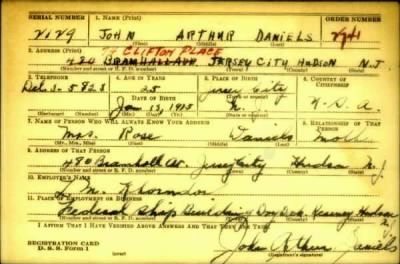 SERIAL NUMBER 1. NAME (Print) ORDER NUMBER
2129 JOHN ARTHUR DANIELS
(First) (Middle) (Last)
79 CLIFTON PLACE
2. ADDRESS (Print)
480 BRAMHALL AVE JERSEY CITY HUDSON N.J
(Number and street or R. F. D. number) (Town) (County) (State)
3. TELEPHONE 4. AGE IN YEARS 5. PLACE OF BIRTH 6. COUNTRY OF CITIZENSHIP
Del. 3-5823 25 Jersey City U.S.A.
DATE OF BIRTH
Jan 13, 1915 N.J.
(Exchange) (Number) (Mo.) (Day) (Yr.) (State or country)
7. NAME OF PERSON WHO WILL ALWAYS KNOW YOUR ADDRESS 8. RELATIONSHIP OF THAT PERSON
Mrs. Rose Daniels Mother
(Mr., Mrs., Miss) (First) (Middle) (Last)
9. ADDRESS OF THAT PERSON
480 Bramhall Av. Jersey City Hudson N.J
(Number and street or R. F. D. number) (Town) (County) (State)
10. EMPLOYER'S NAME
L. M.
11. PLACE OF EMPLOYMENT OR BUSINESS
Federal Ship Building Dry Dock Kearney Hudson N.J
(Number and street or R. F. D. number) (Town) (County) (State)
I AFFIRM THAT I HAVE VERIFIED ABOVE ANSWERS AND THAT THEY ARE TRUE.
John Arthur Daniels
REGISTRATION CARD
D. S. S. Form 1 (over) (Registrant's signature)